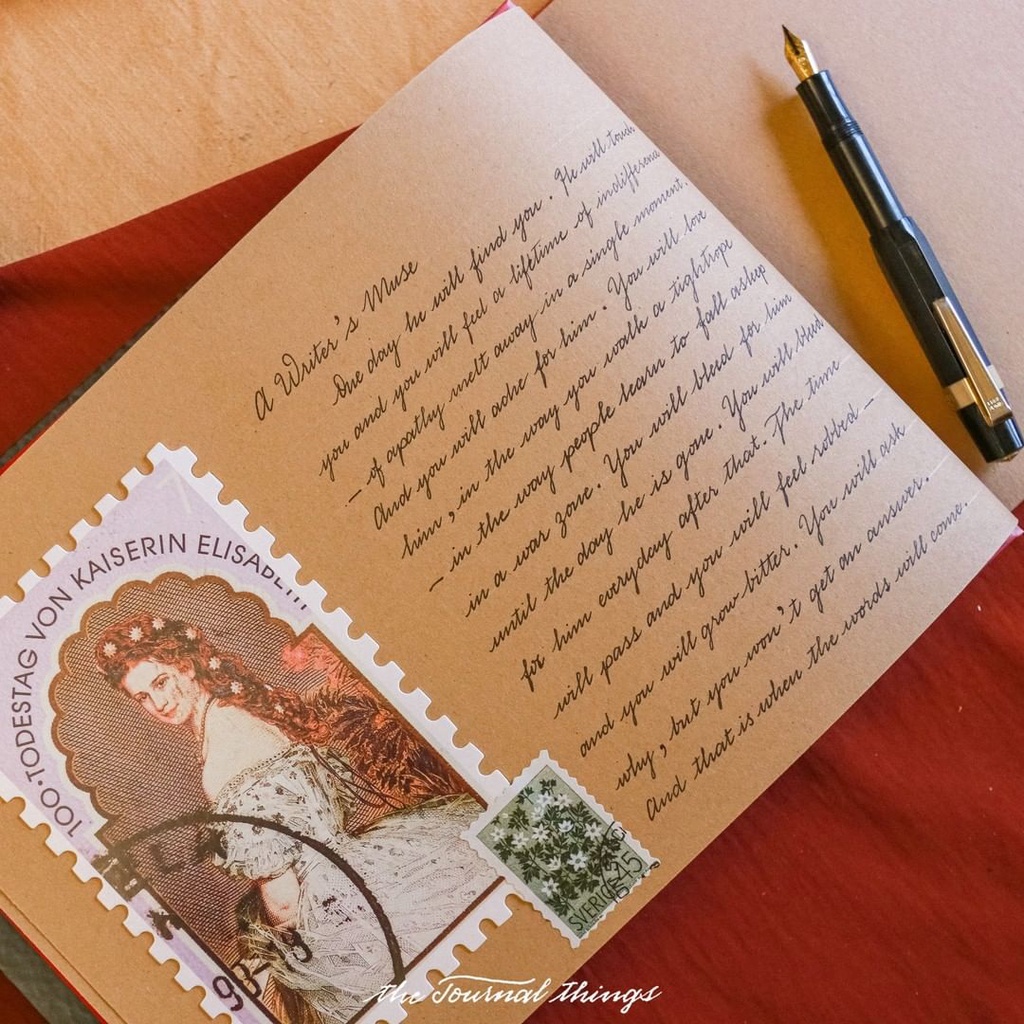 A Writer's Muse
One day he will find you. He will touch
you and you will feel a lifetime of indifference
— of apathy melt away in a single moment.
And you will ache for him. You will love
him, in the way you walk a tightrope
— in the way people learn to fall asleep
in a war zone. You will bleed for him
until the day he is gone. You will bleed
for him everyday after that. The time
will pass and you will feel robbed —
and you will grow bitter. You will ask
why, but you won't get an answer.
And that is when the words will come.
100. TODESTAG VON KAISERIN ELISABETH
98-9
SVERIGE 45
the Journal things